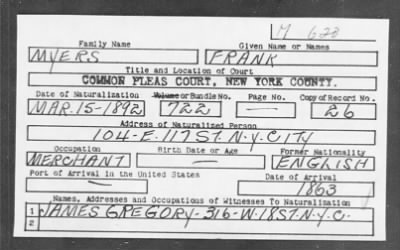 M 623
Family Name Given Name or Names
MYERS FRANK
Title and Location of Court
COMMON PLEAS COURT, NEW YORK COUNTY.
Date of Naturalization Volume or Bundle No. Page No. Copy of Record No.
MAR. 15-1892 722 — 26
Address of Naturalized Person
104-E. 117 ST. N.Y. CITY
Occupation Birth Date or Age Former Nationality
MERCHANT — ENGLISH
Port of Arrival in the United States Date of Arrival
— 1863
Names, Addresses and Occupations of Witnesses To Naturalization
1 JAMES GREGORY-316-W.18 ST. N.Y.C.
2